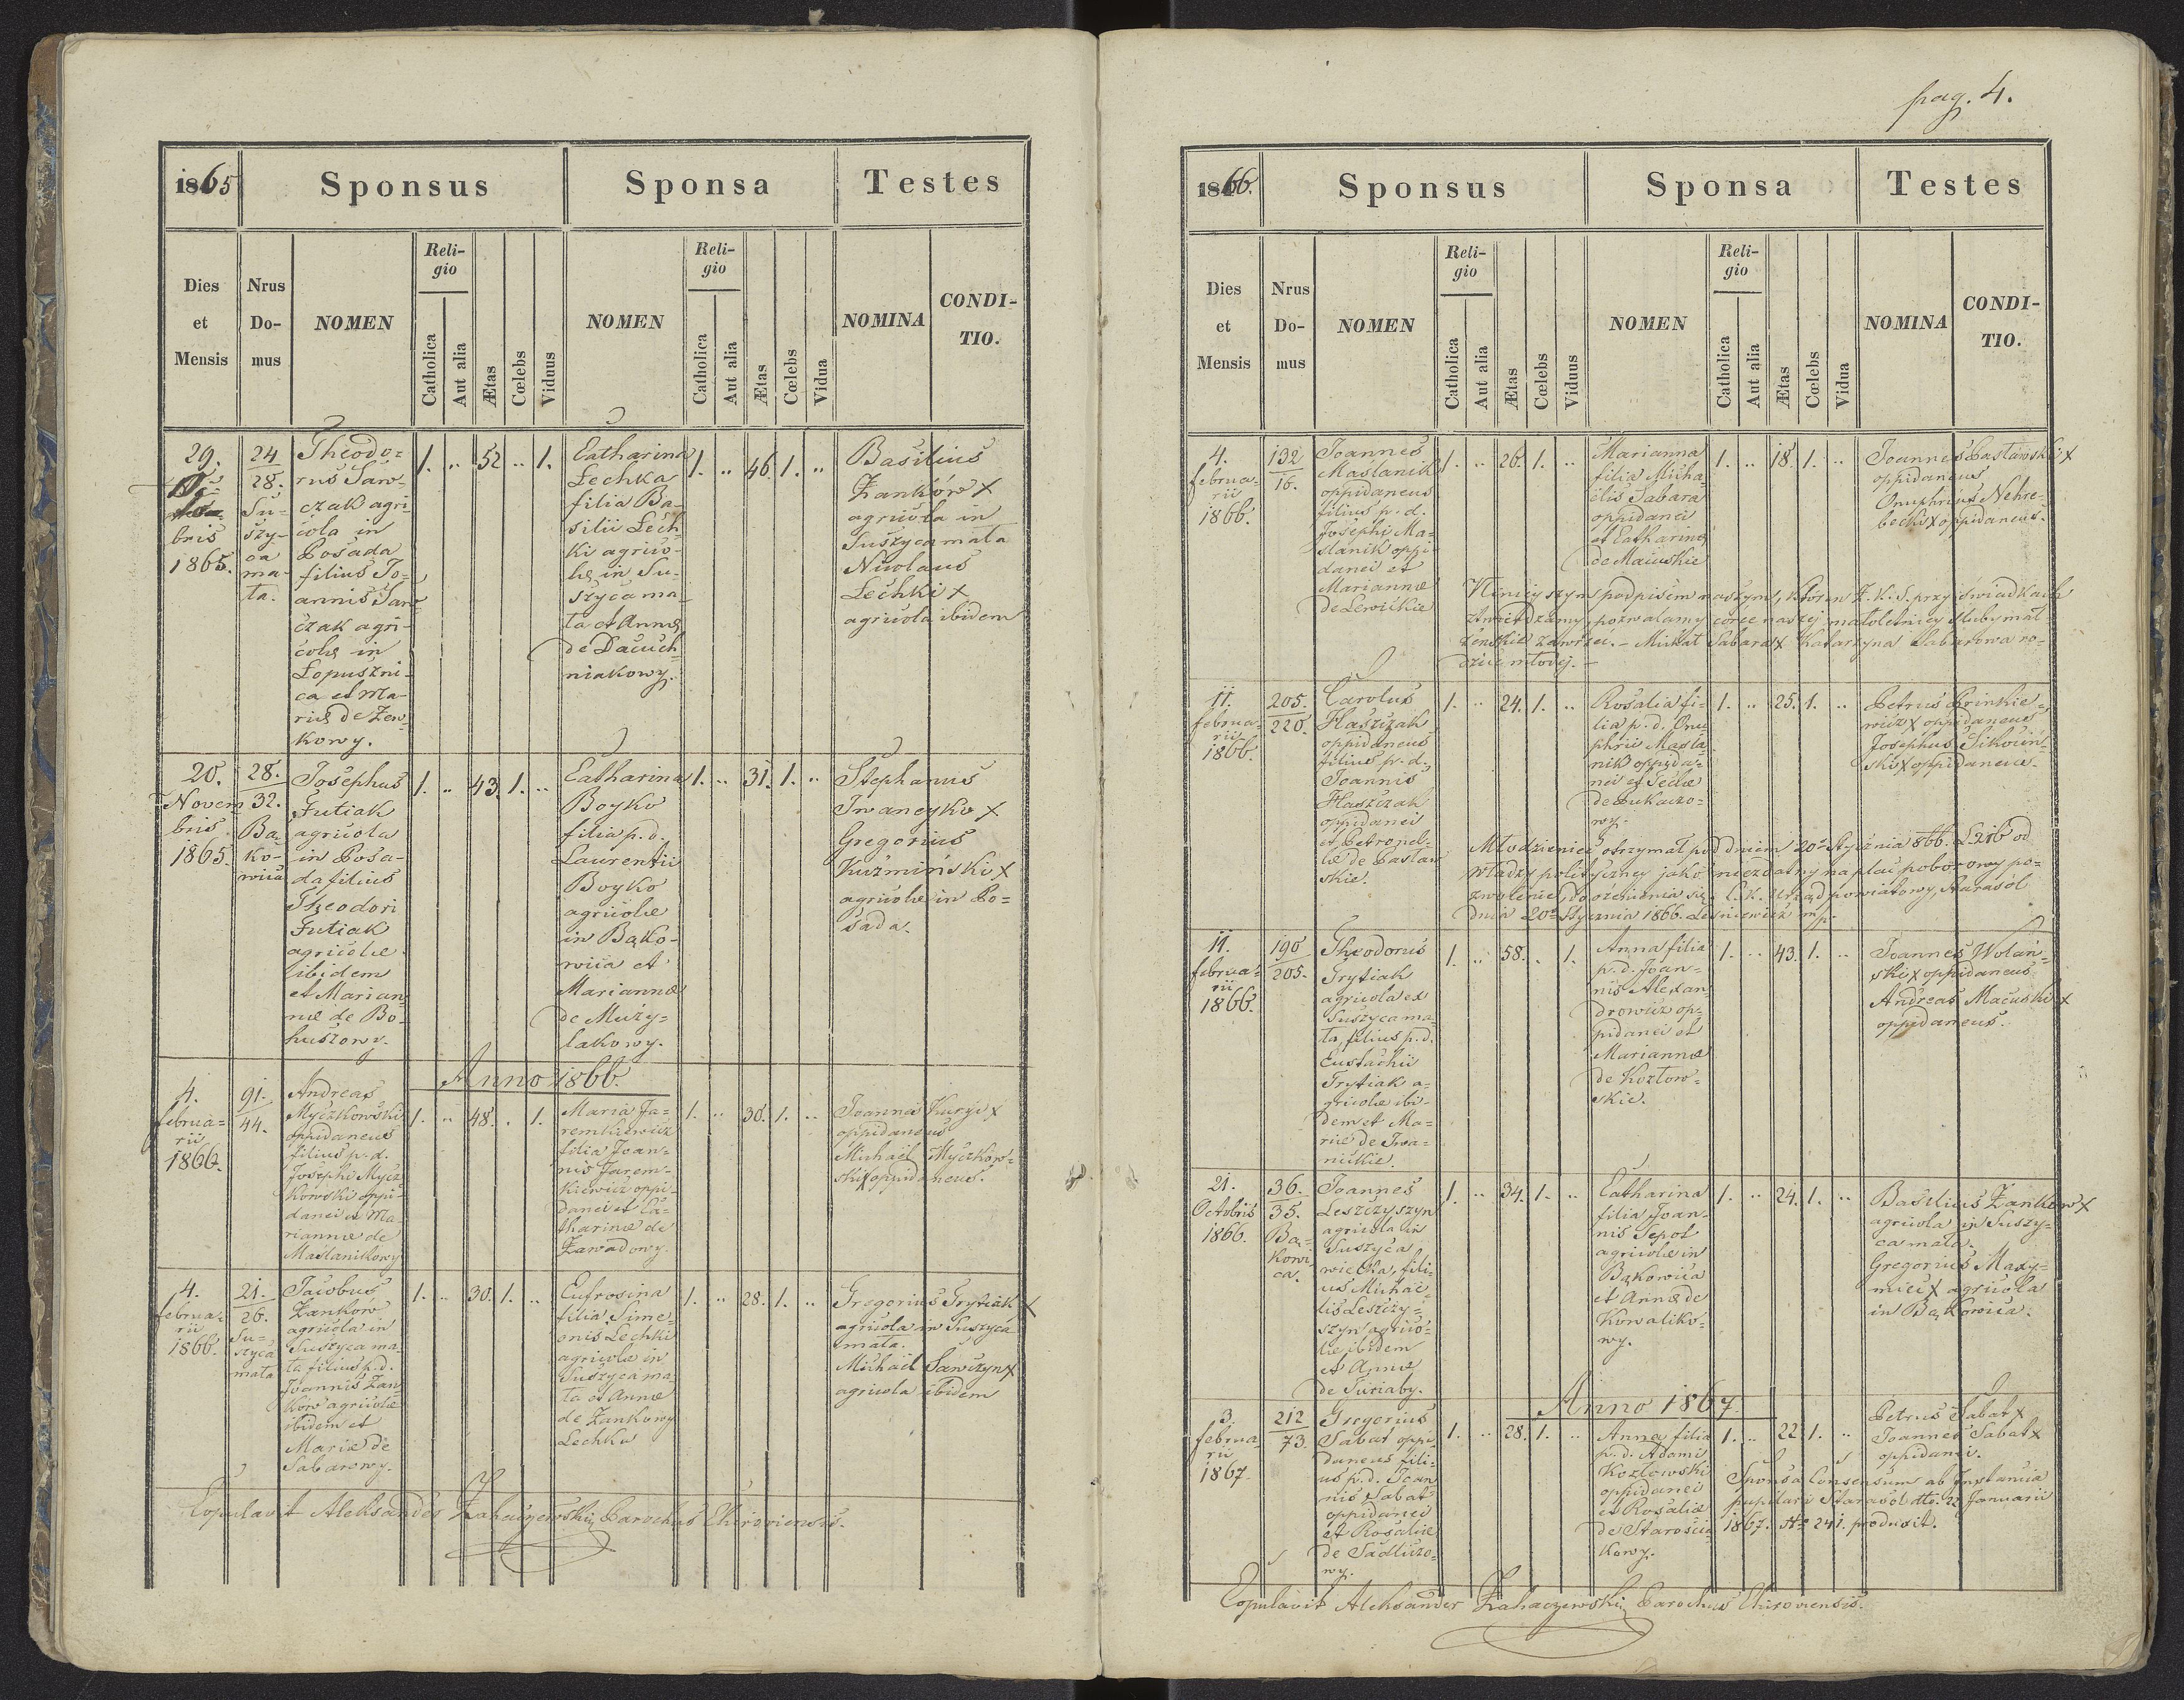 pag. 4.
1865
Sponsus
Sponsa
Testes
Dies
et
Mensis
Nrus
Do-
mus
NOMEN
Reli-
gio
Catholica
Aut alia
Ætas
Cœlebs
Viduus
NOMEN
Reli-
gio
Catholica
Aut alia
Ætas
Cœlebs
Vidua
NOMINA
CONDI-
TIO.
29.
bris
1865.
24
28.
Su-
szy-
ca
ma-
ła.
Theodo=
rus Saw-
czak agri
cola in
Posada
filius Jo=
annis Saw
czak agri-
colæ in
Łopuszni-
ca et Ma-
riæ de Zen-
kowy.
1. .. 52 .. 1.
Catharina
Lechka
filia Ba-
silii Lech
ki agrico-
læ in Su-
szyca ma-
ła et Annæ
de Dacuch-
niakowy.
1. .. 46. 1. ..
Basilius
Zanków x
agricola in
Suszyca mała
Nicolaus
Lechki x
agricola ibidem
20.
Novem
bris
1865.
28.
32.
Bą-
ko-
wica
Josephus
Futiak
agricola
in Posa-
da filius
Theodori
Futiak
agricolæ
ibidem
et Marian
næ de Bo-
huszowy.
1. .. 43. 1. ..
Catharina
Boyko
filia p. d.
Laurentii
Boyko
agricolæ
in Bąko-
wica et
Mariannæ
de Muzy=
lakowy.
1. .. 31. 1. ..
Stephanus
Iwaneyko x
Gregorius
Kuzmiński x
agricolæ in Po=
sada.
Anno 1866.
4.
februa=
rii
1866.
91.
44.
Andreas
Myczkowski
oppidaneus
filius p. d.
Josephi Mycz
kowski oppi-
danei et Ma-
riannæ de
Maslanikowy
1. .. 48. . 1.
Maria Ja=
remkiewicz
filia Joan-
nis Jarem-
kiewicz oppi-
danei et Ca-
tharinæ de
Zawadowy.
1. .. 30. 1. ..
Joannes Kuryc x
oppidaneus
Michael Myczkow-
ski x oppidaneus.
4.
februa-
rii
1866.
21.
26.
Su=
szyca
mała
Jacobus
Zankow
agricola in
Suszyca ma-
ła filius p. d.
Joannis Zan-
kow agricolæ
ibidem et
Mariæ de
Sabarowy.
1. .. 30. 1. ..
Eufrosina
filia Sime-
onis Lechki
agricolæ in
Suszyca ma-
ła et Annæ
de Zankowy
Lechka
1. .. 28. 1. ..
Gregorius Frytiak x
agricola in Suszyca
mała.
Michael Sawczyn x
agricola ibidem
Copulavit Aleksander Zahaczewski, Parochus Chiroviensis.
1866.
Sponsus
Sponsa
Testes
Dies
et
Mensis
Nrus
Do-
mus
NOMEN
Reli-
gio
Catholica
Aut alia
Ætas
Cœlebs
Viduus
NOMEN
Reli-
gio
Catholica
Aut alia
Ætas
Cœlebs
Vidua
NOMINA
CONDI-
TIO.
4.
februa-
rii
1866.
132
16.
Joannes
Maslanik
oppidaneus
filius p. d.
Josephi Ma-
slanik oppi-
danei et
Mariannæ
de Lewickie
1. .. 26. 1. ..
Marianna
filia Micha-
elis Sabara
oppidanei
et Catharinæ
de Maciuskie
1. .. 18. 1. ..
Joannes Pasławski x
oppidaneus
Onuphrius Nehre-
becki x oppidaneus.
Niniejszym podpisem naszym, któren Z. K. S. przy świadkach
ztwierdzamy, pozwalamy córce naszej małoletniey śluby mał-
żeńskie zawrzec. - Michał Sabara x Katarzyna Sabarowa ro-
dzice młodej. -
11.
februa-
rii
1866.
205.
220.
Carolus
Haszczak
oppidaneus
filius p. d.
Joannis
Haszczak
oppidanei
et Petronel-
læ de Pasław
skie.
1. .. 24. 1. ..
Rosalia fi-
lia p. d. Onu-
phrii Masla-
nik oppida-
nei et Teclæ
de Łukaczo=
wy.
1. .. 25. 1. ..
Petrus Brinkie-
wicz x oppidaneus
Josephus Sikociń-
ski x oppidaneus.
Młodzieniec otrzymał pod dniem 20o Stycznia 866. L. 216 od
władzy polityczney jako niezdatny na plac poborowy po=
zwolenie do ożenienia się. C. K. Urząd powiatowy, Starasól
dnia 20o Stycznia 1866. Leśniewicz mp.
11.
februa-
rii
1866.
190
205.
Theodorus
Frytiak
agricola ex
Suszyca ma-
ła, filius p. d.
Eustachii
Frytiak a-
gricolæ ibi-
dem et Ma-
riæ de Iwa-
nickie.
1. .. 58. . 1.
Anna filia
p. d. Joan-
nis Alexan-
drowicz op-
pidanei et
Mariannæ
de Kozłow-
skie.
1. .. 43. 1. ..
Joannes Wolań-
ski x oppidaneus
Andreas Maciuski x
oppidaneus.
21.
Octobris
1866.
36.
35.
Bą-
kowi
ca.
Joannes
Leszczyszyn
agricola in
Suszyca
wielka, fili-
us Michae-
lis Leszczy-
szyn agrico-
læ ibidem
et Annæ
de Suziaby.
1. .. 34. 1. ..
Catharina
filia Joan-
nis Sepot
agricolæ in
Bąkowica
et Annæ de
Kowaliko-
wy.
1. .. 24. 1. ..
Basilius Zankow x
agricola in Suszy=
ca mała.
Gregorius Maxy-
miec x agricola
in Bąkowica.
Anno 1867.
3.
februa-
rii
1867.
212
73.
Gregorius
Sabat oppi-
daneus fili-
us p. d. Joan
nis Sabat
oppidanei
et Rosaliæ
de Sadliczo-
wy.
1. .. 28. 1. ..
Anna filia
p. d. Adami
Kozłowski
oppidanei
et Rosaliæ
de Starościa
kowy.
1. .. 22 1. ..
Petrus Sabat x
Joannes Sabat x
oppidanei.
Sponsa Consensum ab Instancia
pupilari Starasól dto. 22 Januarii
1867. No 241. produxit.
Copulavit Aleksander Zahaczewski, Parochus Chiroviensis.